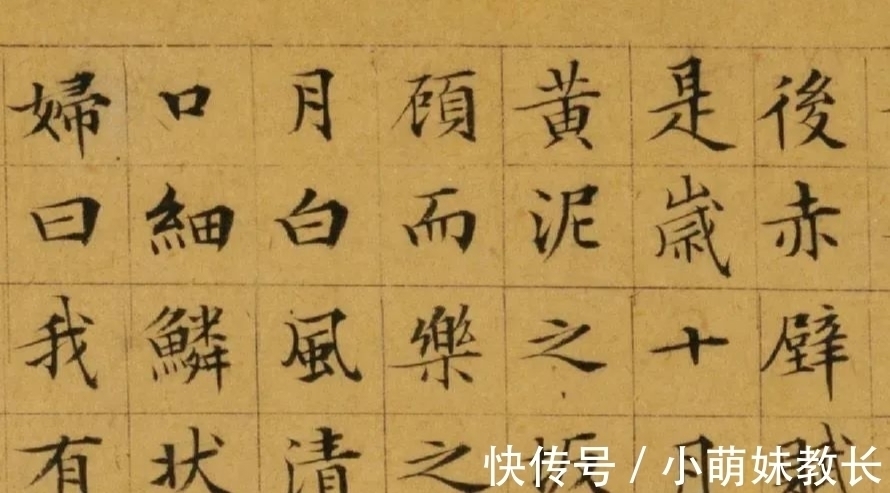 後赤壁賦
是歲十月
黃泥之坂
顧而樂之
月白風清
口細鱗狀
婦曰我有
快传号 / 小萌妹教长